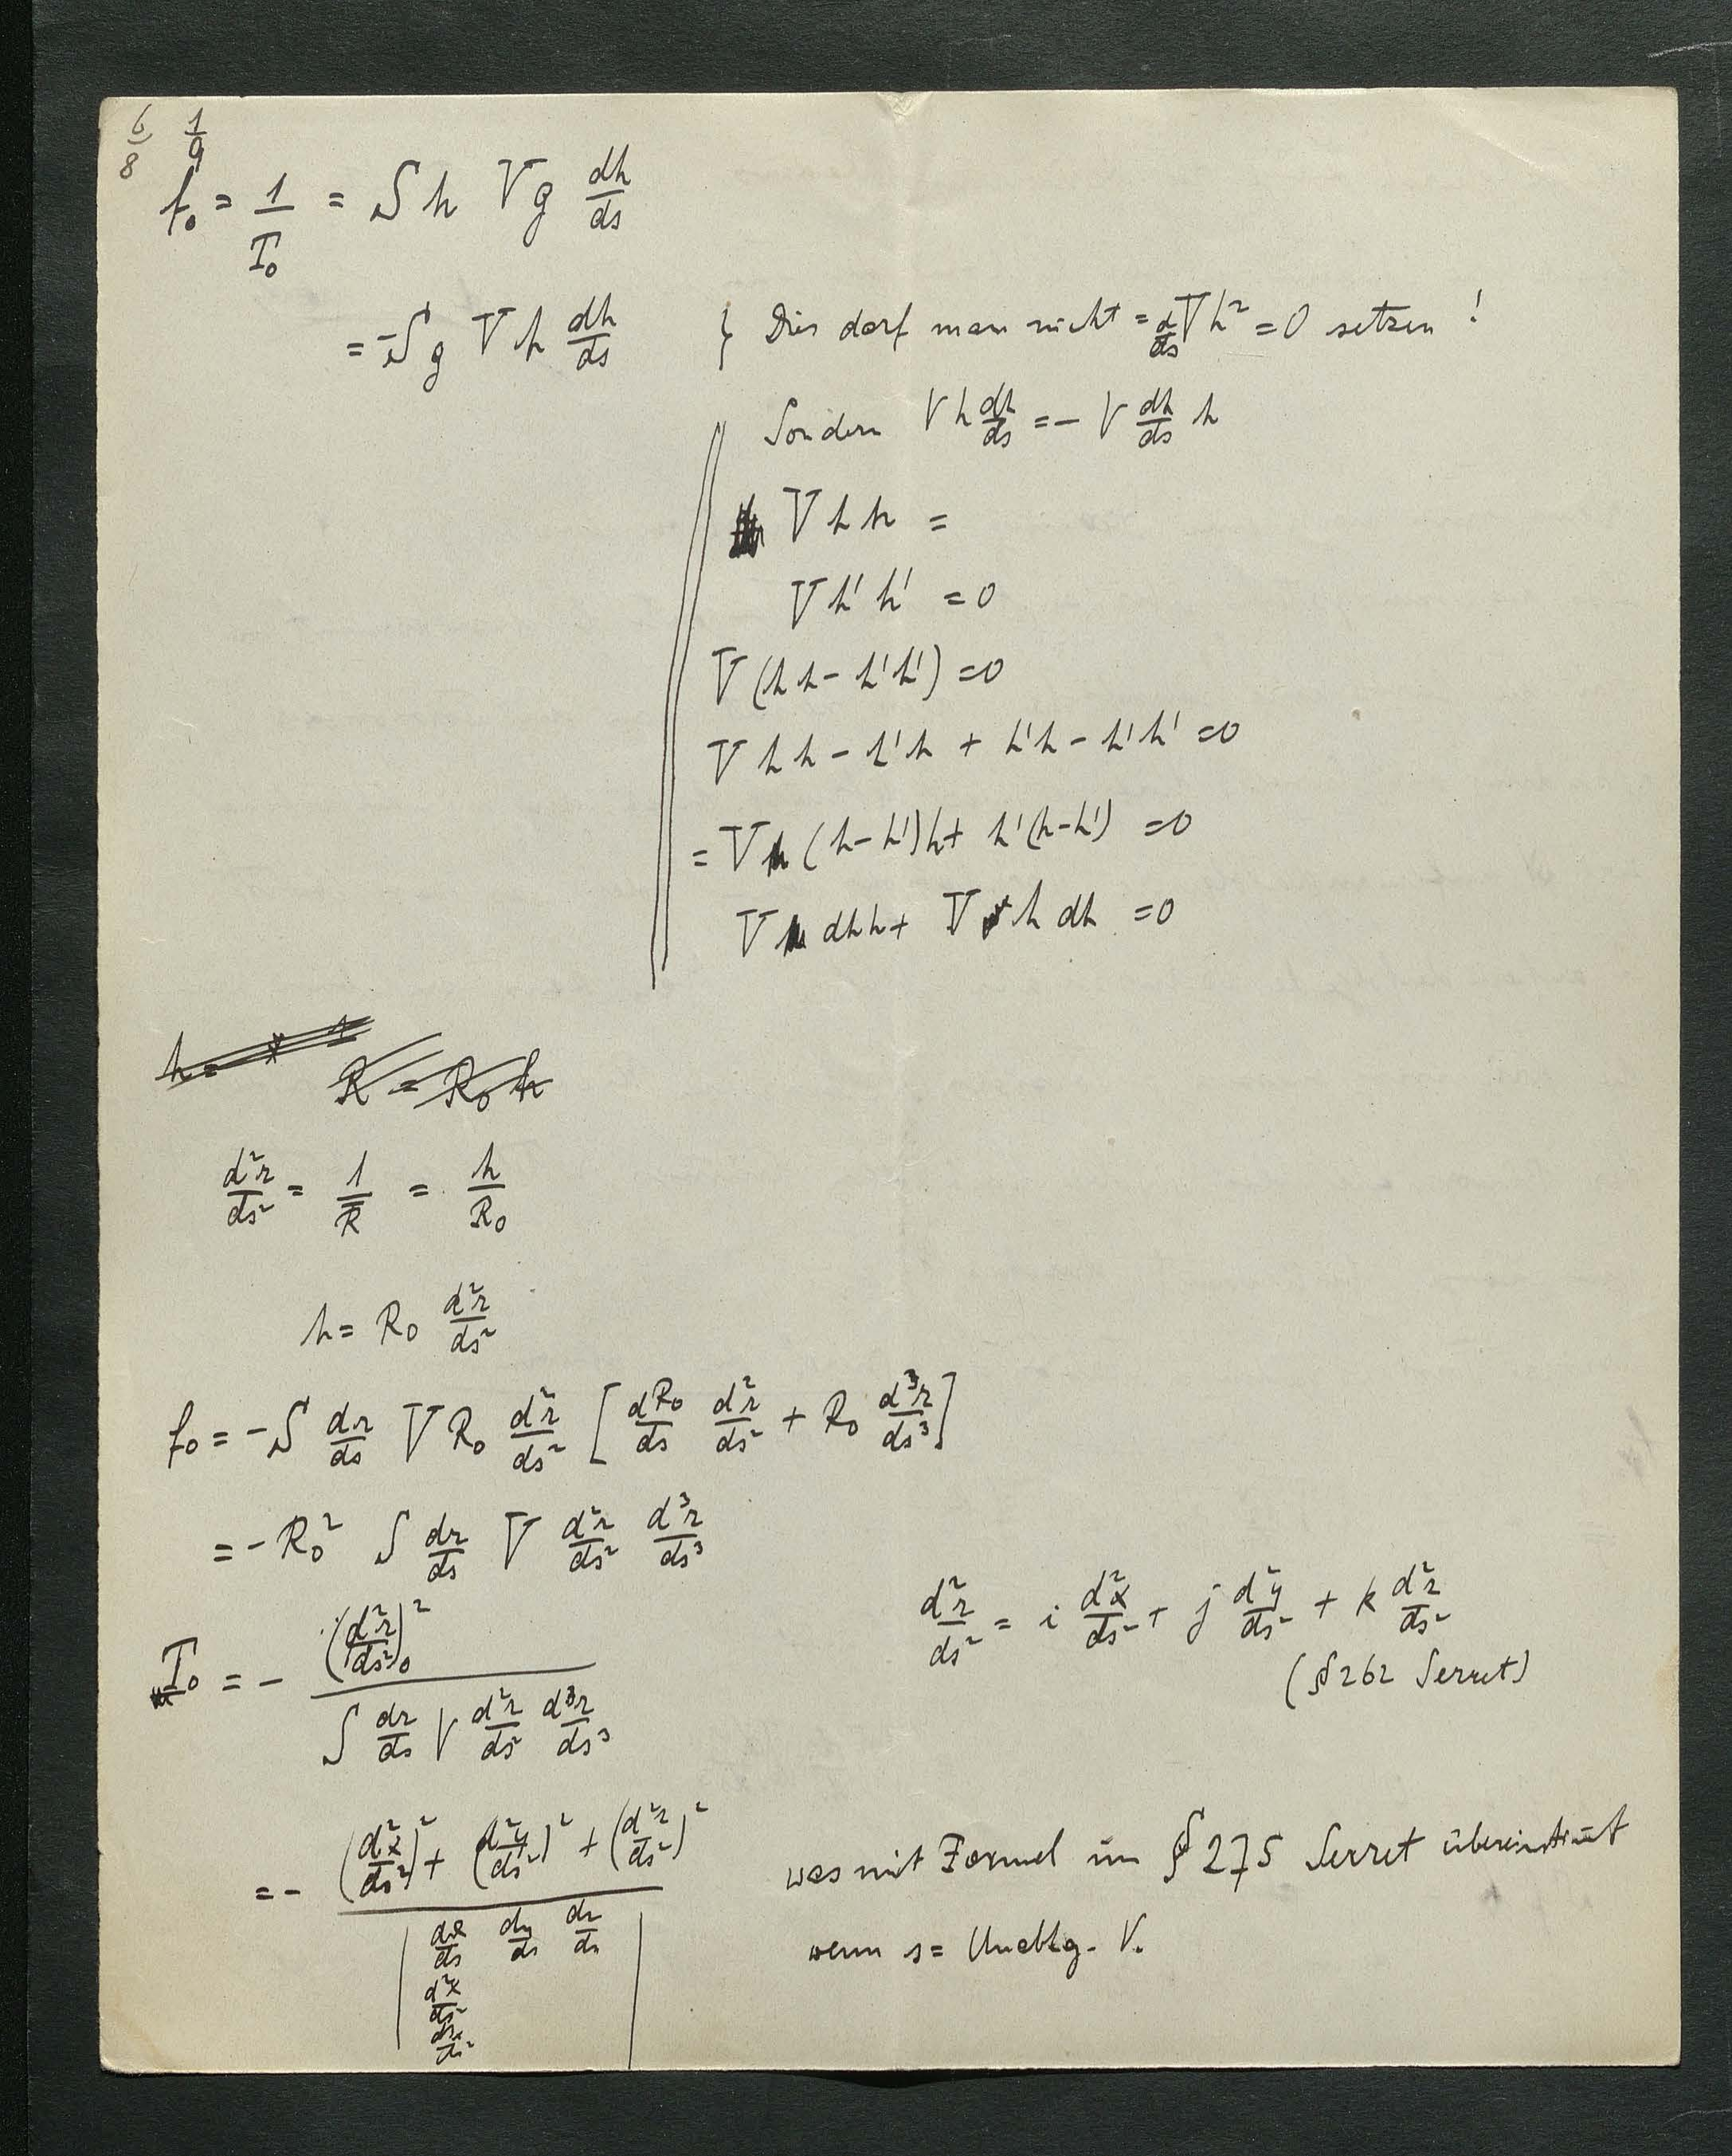 6/8 1/9
f₀ = 1/T₀ = S h V g dh/ds
= -S g V h dh/ds } Dies darf man nicht = d/ds V h² = 0 setzen !
Sondern V h dh/ds = - V dh/ds h
V h h =
V h' h' = 0
V (h h - h'h') = 0
V h h - h'h + h'h - h'h' = 0
= V (h - h')h + h'(h - h') = 0
V dh h + V h dh = 0
h =
R = R₀ h
d²r/ds² = 1/R = h/R₀
h = R₀ d²r/ds²
f₀ = - S dr/ds V R₀ d²r/ds² [ dR₀/ds d²r/ds² + R₀ d³r/ds³ ]
= - R₀² S dr/ds V d²r/ds² d³r/ds³
d²r/ds² = i d²x/ds² + j d²y/ds² + k d²z/ds²
(§ 262 Serret)
T₀ = - (d²r/ds²)₀² / S dr/ds V d²r/ds² d³r/ds³
= - (d²x/ds²)² + (d²y/ds²)² + (d²z/ds²)² / | dx/ds dy/ds dz/ds
d²x/ds²
|
was mit Formel im § 275 Serret übereinstimt
wenn s = Unabhg. V.